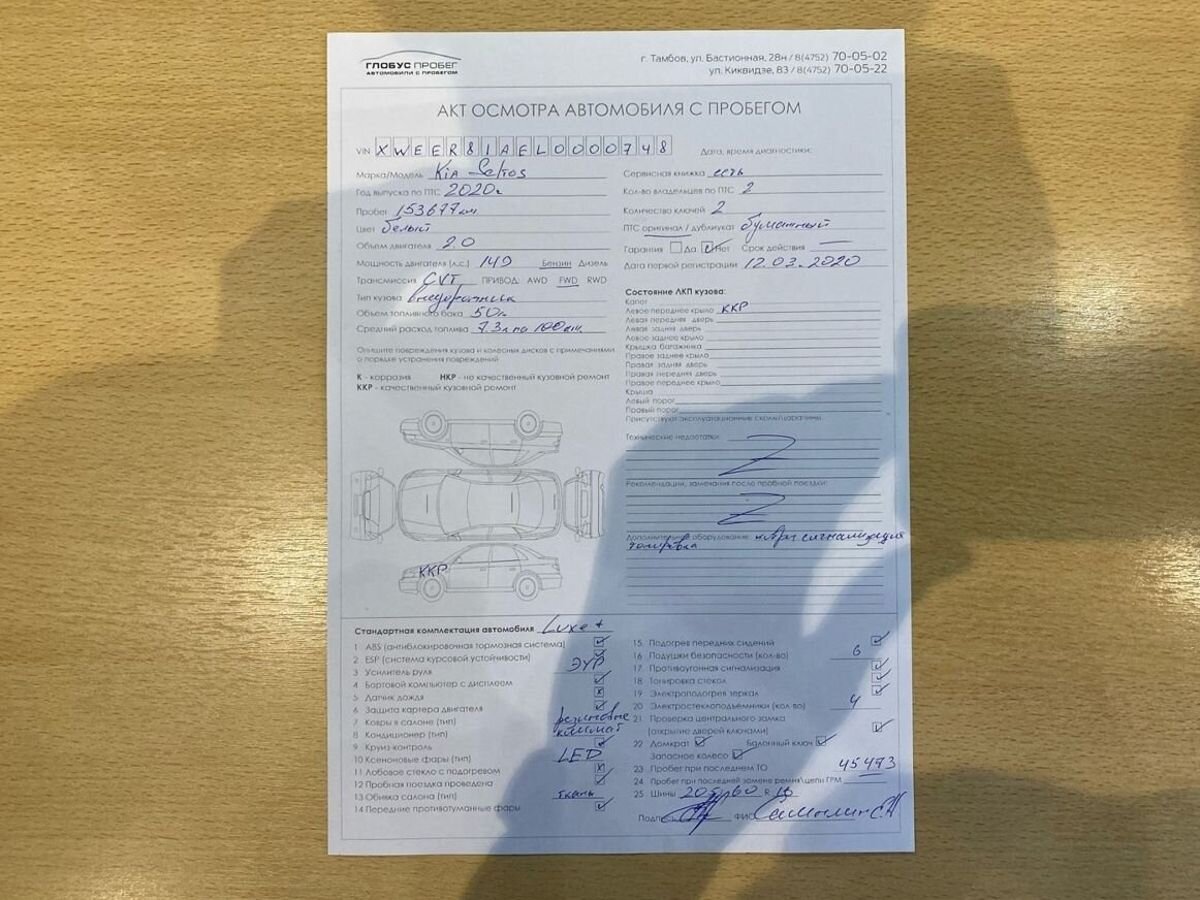 ГЛОБУС ПРОБЕГ
АВТОМОБИЛИ С ПРОБЕГОМ
г. Тамбов, ул. Бастионная, 28н / 8(4752) 70-05-02
ул. Киквидзе, 83 / 8(4752) 70-05-22
АКТ ОСМОТРА АВТОМОБИЛЯ С ПРОБЕГОМ
VIN XWEER81AEL0000748
Дата, время диагностики:
Марка/Модель Kia Seltos
Год выпуска по ПТС 2020г
Пробег 153677 км
Цвет белый
Объем двигателя 2.0
Мощность двигателя (л.с.) 149 Бензин Дизель
Трансмиссия CVT ПРИВОД: AWD FWD RWD
Тип кузова внедорожник
Объем топливного бака 50л
Средний расход топлива 7.3л по 100км.
Опишите повреждения кузова и колесных дисков с примечаниями
о порядке устранения повреждений
К - коррозия НКР - не качественный кузовной ремонт
ККР - качественный кузовной ремонт
ККР
Сервисная книжка есть
Кол-во владельцев по ПТС 2
Количество ключей 2
ПТС оригинал / дубликат бумажный
Гарантия Да Нет Срок действия —
Дата первой регистрации 12.03.2020
Состояние ЛКП кузова:
Капот
Левое переднее крыло ККР
Левая передняя дверь
Левая задняя дверь
Левое заднее крыло
Крышка багажника
Правое заднее крыло
Правая задняя дверь
Правая передняя дверь
Правое переднее крыло
Крыша
Левый порог
Правый порог
Присутствуют эксплуатационные сколы/царапины
Технические недостатки:
Z
Рекомендации, замечания после пробной поездки:
Z
Дополнительное оборудование: сигнализация
тонировка
Стандартная комплектация автомобиля Luxe +
1 ABS (антиблокировочная тормозная система)
2 ESP (система курсовой устойчивости)
3 Усилитель руля ЭУР
4 Бортовой компьютер с дисплеем
5 Датчик дождя
6 Защита картера двигателя
7 Ковры в салоне (тип) резиновые
8 Кондиционер (тип) климат
9 Круиз контроль
10 Ксеноновые фары (тип) LED
11 Лобовое стекло с подогревом
12 Пробная поездка проведена
13 Обивка салона (тип) ткань
14 Передние противотуманные фары
15 Подогрев передних сидений
16 Подушки безопасности (кол-во) 6
17 Противоугонная сигнализация
18 Тонировка стекол
19 Электроподогрев зеркал
20 Электростеклоподъемники (кол-во) 4
21 Проверка центрального замка
(открытие дверей ключами)
22 Домкрат Балонный ключ
Запасное колесо
23 Пробег при последнем ТО 45473
24 Пробег при последней замене ремня\цепи ГРМ
25 Шины 205\60 R 16
Подпись ФИО